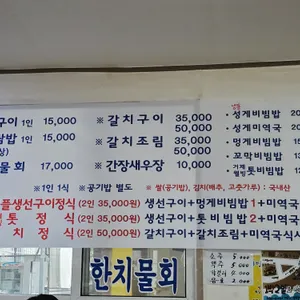 구이 1인 15,000
밥 1인 15,000
상)
물회 17,000
※갈치구이 35,000
50,000
※갈치조림 35,000
50,000
※간장새우장 10,000
•성게비빔밥
•성게미역국
•멍게비빔밥
•꼬막비빔밥
※1인 1식 ※공기밥 별도 ※쌀(공기밥), 김치(배추, 고춧가루) : 국내산
플생선구이정식 (2인 35,000원) 생선구이+멍게비빔밥1+미역국
톳정식 (2인 35,000원) 생선구이+톳비빔밥 2+미역국
치정식 (2인 50,000원) 갈치구이+갈치조림+미역국식사
한치물회
소주
맥주